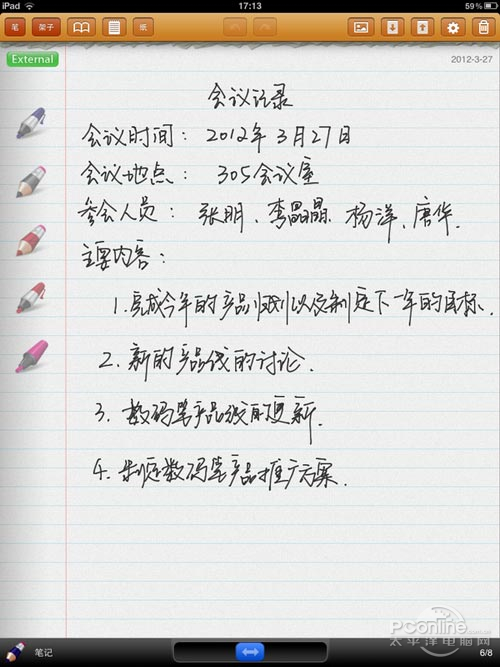 iPad 17:13 59%
笔 架子 纸
External 2012-3-27
会议记录
会议时间：2012年3月27日
会议地点：305会议室
参会人员：张明、李晶晶、杨洋、唐华.
主要内容：
1.完成今年的产品规划以及制定下一年的目标.
2.新的产品线的讨论.
3.数码笔产品线的更新.
4.制定数码笔产品推广方案.
PConline
太平洋电脑网
笔记 6/8